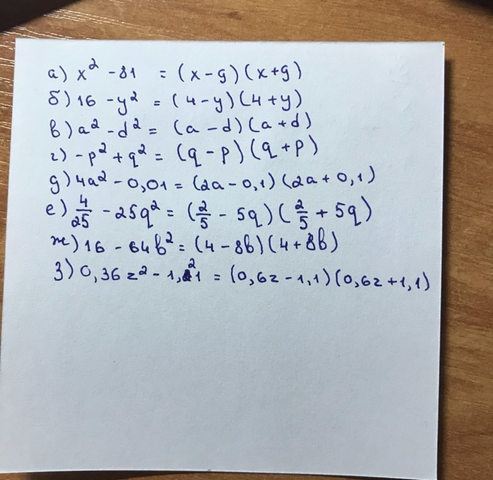 а) x² - 81 = (x - 9)(x + 9)
б) 16 - y² = (4 - y)(4 + y)
в) a² - d² = (a - d)(a + d)
г) -p² + q² = (q - p)(q + p)
д) 4a² - 0,01 = (2a - 0,1)(2a + 0,1)
е) 4/25 - 25q² = (2/5 - 5q)(2/5 + 5q)
ж) 16 - 64b² = (4 - 8b)(4 + 8b)
з) 0,36z² - 1,21 = (0,6z - 1,1)(0,6z + 1,1)